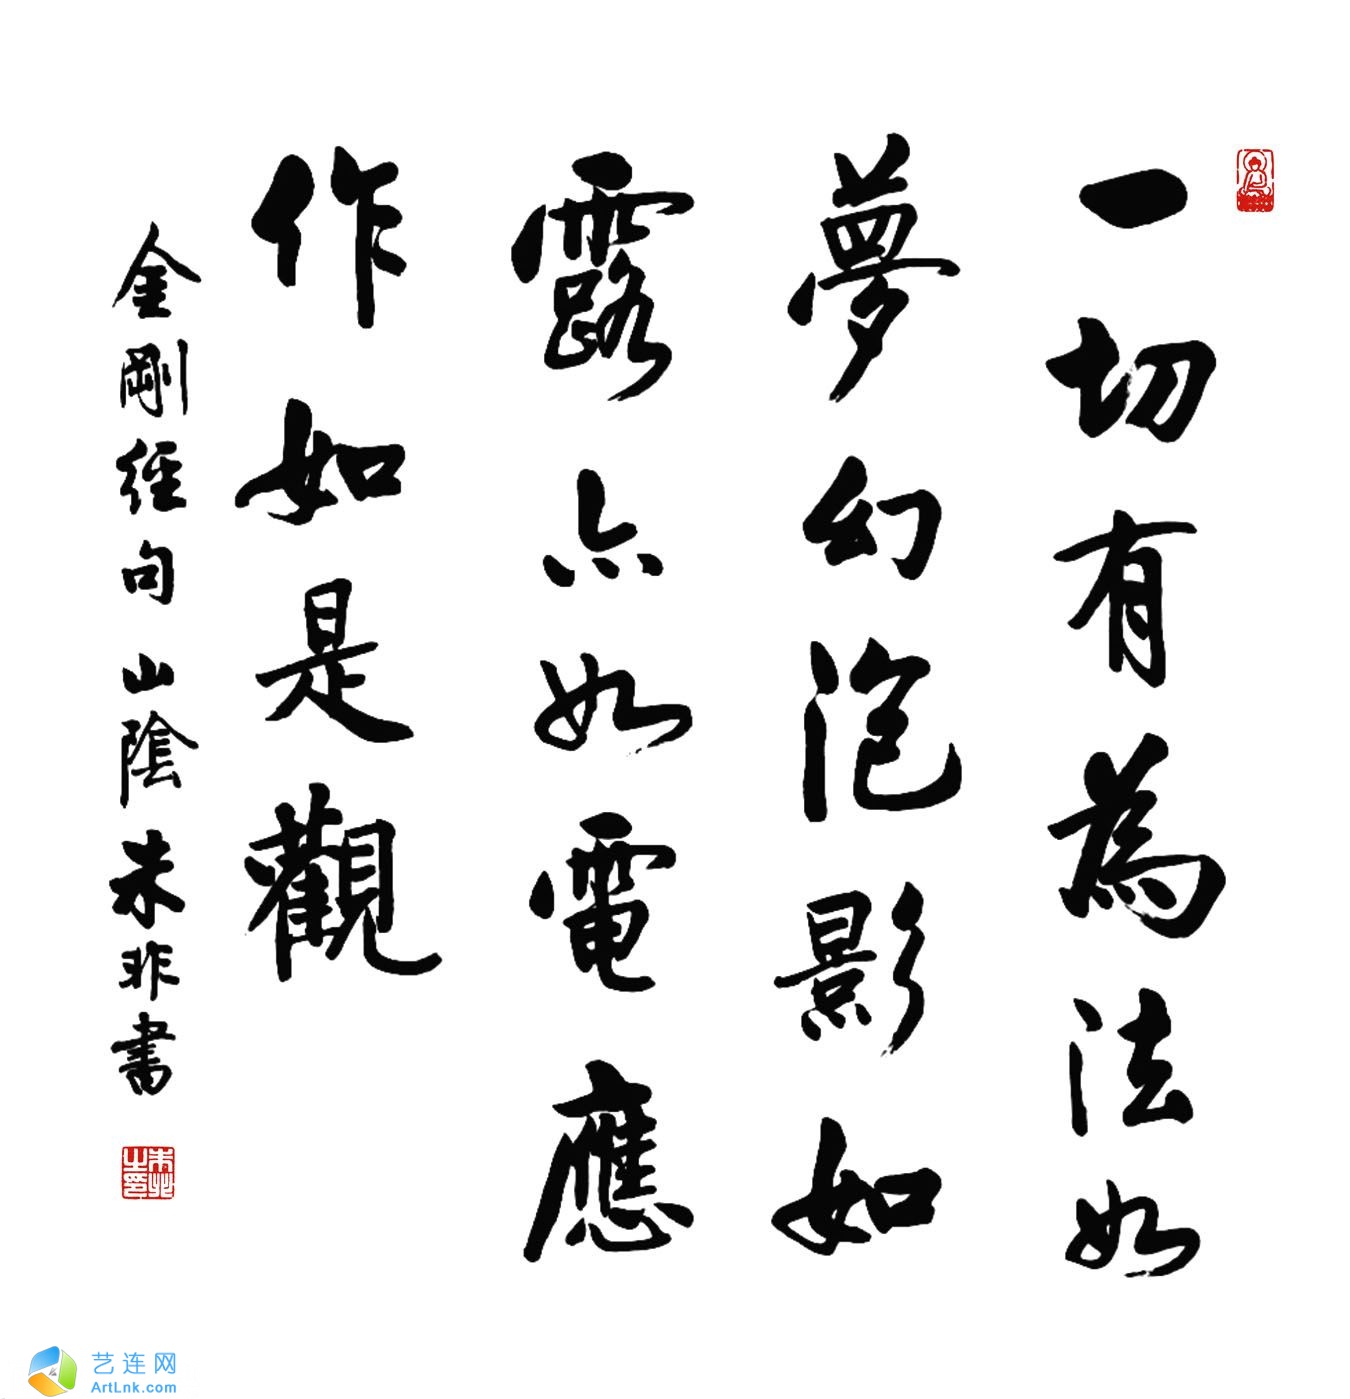 一切有為法如
夢幻泡影如
露亦如電應
作如是觀
金剛經句 山陰朱非書
朱非之印
艺连网
ArtLnk.com